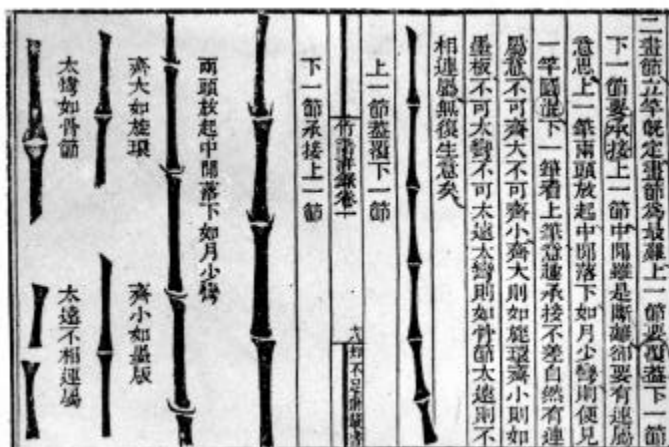 二畫節立竿既定畫節爲最難上一節要覆蓋下一節
下一節要承接上一節中間雖是斷離卻要有連屬
意思上一筆兩頭放起中間落下如月少彎則便見
一竿圓混下一筆看上筆意趣承接不差自然有連
屬意不可齊大不可齊小齊大則如旋環齊小則如
墨板不可太彎不可太遠太彎則如骨節太遠則不
相連屬無復生意矣
上一節蓋覆下一節
竹譜詳錄卷一
知不足齋叢書
下一節承接上一節
兩頭放起中間落下如月少彎
齊大如旋環
齊小如墨版
太彎如骨節
太遠不相連屬